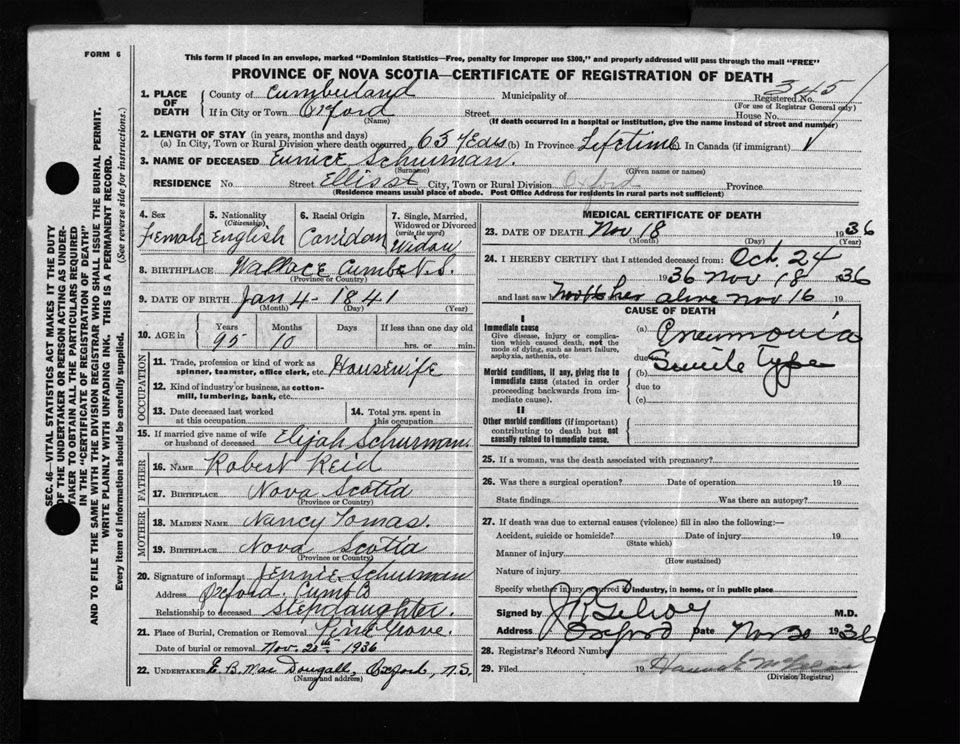 FORM 6
This form if placed in an envelope, marked "Dominion Statistics—Free, penalty for improper use $300," and properly addressed will pass through the mail "FREE"
PROVINCE OF NOVA SCOTIA—CERTIFICATE OF REGISTRATION OF DEATH
345
1. PLACE OF DEATH { County of Cumberland Municipality of Registered No.
(For use of Registrar General only)
If in City or Town Oxford Street House No.
(Name) (If death occurred in a hospital or institution, give the name instead of street and number)
2. LENGTH OF STAY (in years, months and days)
(a) In City, Town or Rural Division where death occurred 63 yeas (b) In Province Lifetime In Canada (if immigrant)
3. NAME OF DECEASED Eunice Schurman.
(Surname) (Given name or names)
RESIDENCE No. Street Ellis st City, Town or Rural Division Oxford Province
(Residence means usual place of abode. Post Office Address for residents in rural parts not sufficient)
4. Sex
Female
5. Nationality (Citizenship)
English
6. Racial Origin
Canidan
7. Single, Married, Widowed or Divorced (write the word)
Widow
8. BIRTHPLACE Wallace Cumb N.S.
(Province or Country)
9. DATE OF BIRTH Jan 4 - 1841
(Month) (Day) (Year)
10. AGE in { Years Months Days If less than one day old
95 10 hrs. or min.
OCCUPATION
11. Trade, profession or kind of work as spinner, teamster, office clerk, etc. Housewife
12. Kind of industry or business, as cotton-mill, lumbering, bank, etc.
13. Date deceased last worked at this occupation
14. Total yrs. spent in this occupation
15. If married give name of wife or husband of deceased Elijah Schurman
FATHER
16. NAME Robert Reid
17. BIRTHPLACE Nova Scotia
(Province or Country)
MOTHER
18. MAIDEN NAME Nancy Tomas.
19. BIRTHPLACE Nova Scotia
(Province or Country)
20. Signature of informant Jennie Schurman
Address Oxford. Cumb Co
Relationship to deceased Stepdaughter.
21. Place of Burial, Cremation or Removal Pine Grove.
Date of burial or removal Nov. 20th 1936
22. UNDERTAKER E. B. Mac Dougall, Oxford, N.S.
(Name and address)
MEDICAL CERTIFICATE OF DEATH
23. DATE OF DEATH Nov 18 1936
(Month) (Day) (Year)
24. I HEREBY CERTIFY that I attended deceased from: Oct. 24
1936 Nov 18 1936
and last saw her alive Nov 16 19
CAUSE OF DEATH
I
Immediate cause
Give disease, injury or complication which caused death, not the mode of dying, such as heart failure, asphyxia, asthenia, etc.
(a) Pneumonia
due to
Morbid conditions, if any, giving rise to immediate cause (stated in order proceeding backwards from immediate cause).
(b) Senile Type
due to
(c)
II
Other morbid conditions (if important) contributing to death but not causally related to immediate cause.
25. If a woman, was the death associated with pregnancy?
26. Was there a surgical operation? Date of operation 19
State findings Was there an autopsy?
27. If death was due to external causes (violence) fill in also the following:—
Accident, suicide or homicide? Date of injury 19
(State which)
Manner of injury
(How sustained)
Nature of injury
Specify whether injury occurred in industry, in home, or in public place
Signed by M.D.
Address Oxford Date Nov 20 1936
28. Registrar's Record Number
29. Filed 19 Hannah
(Division Registrar)
SEC. 46—VITAL STATISTICS ACT MAKES IT THE DUTY
OF THE UNDERTAKER OR PERSON ACTING AS UNDER-
TAKER TO OBTAIN ALL THE PARTICULARS REQUIRED
IN THE "CERTIFICATE OF REGISTRATION OF DEATH"
AND TO FILE THE SAME WITH THE DIVISION REGISTRAR WHO SHALL ISSUE THE BURIAL PERMIT.
WRITE PLAINLY WITH UNFADING INK. THIS IS A PERMANENT RECORD.
Every item of information should be carefully supplied. (See reverse side for instructions.)